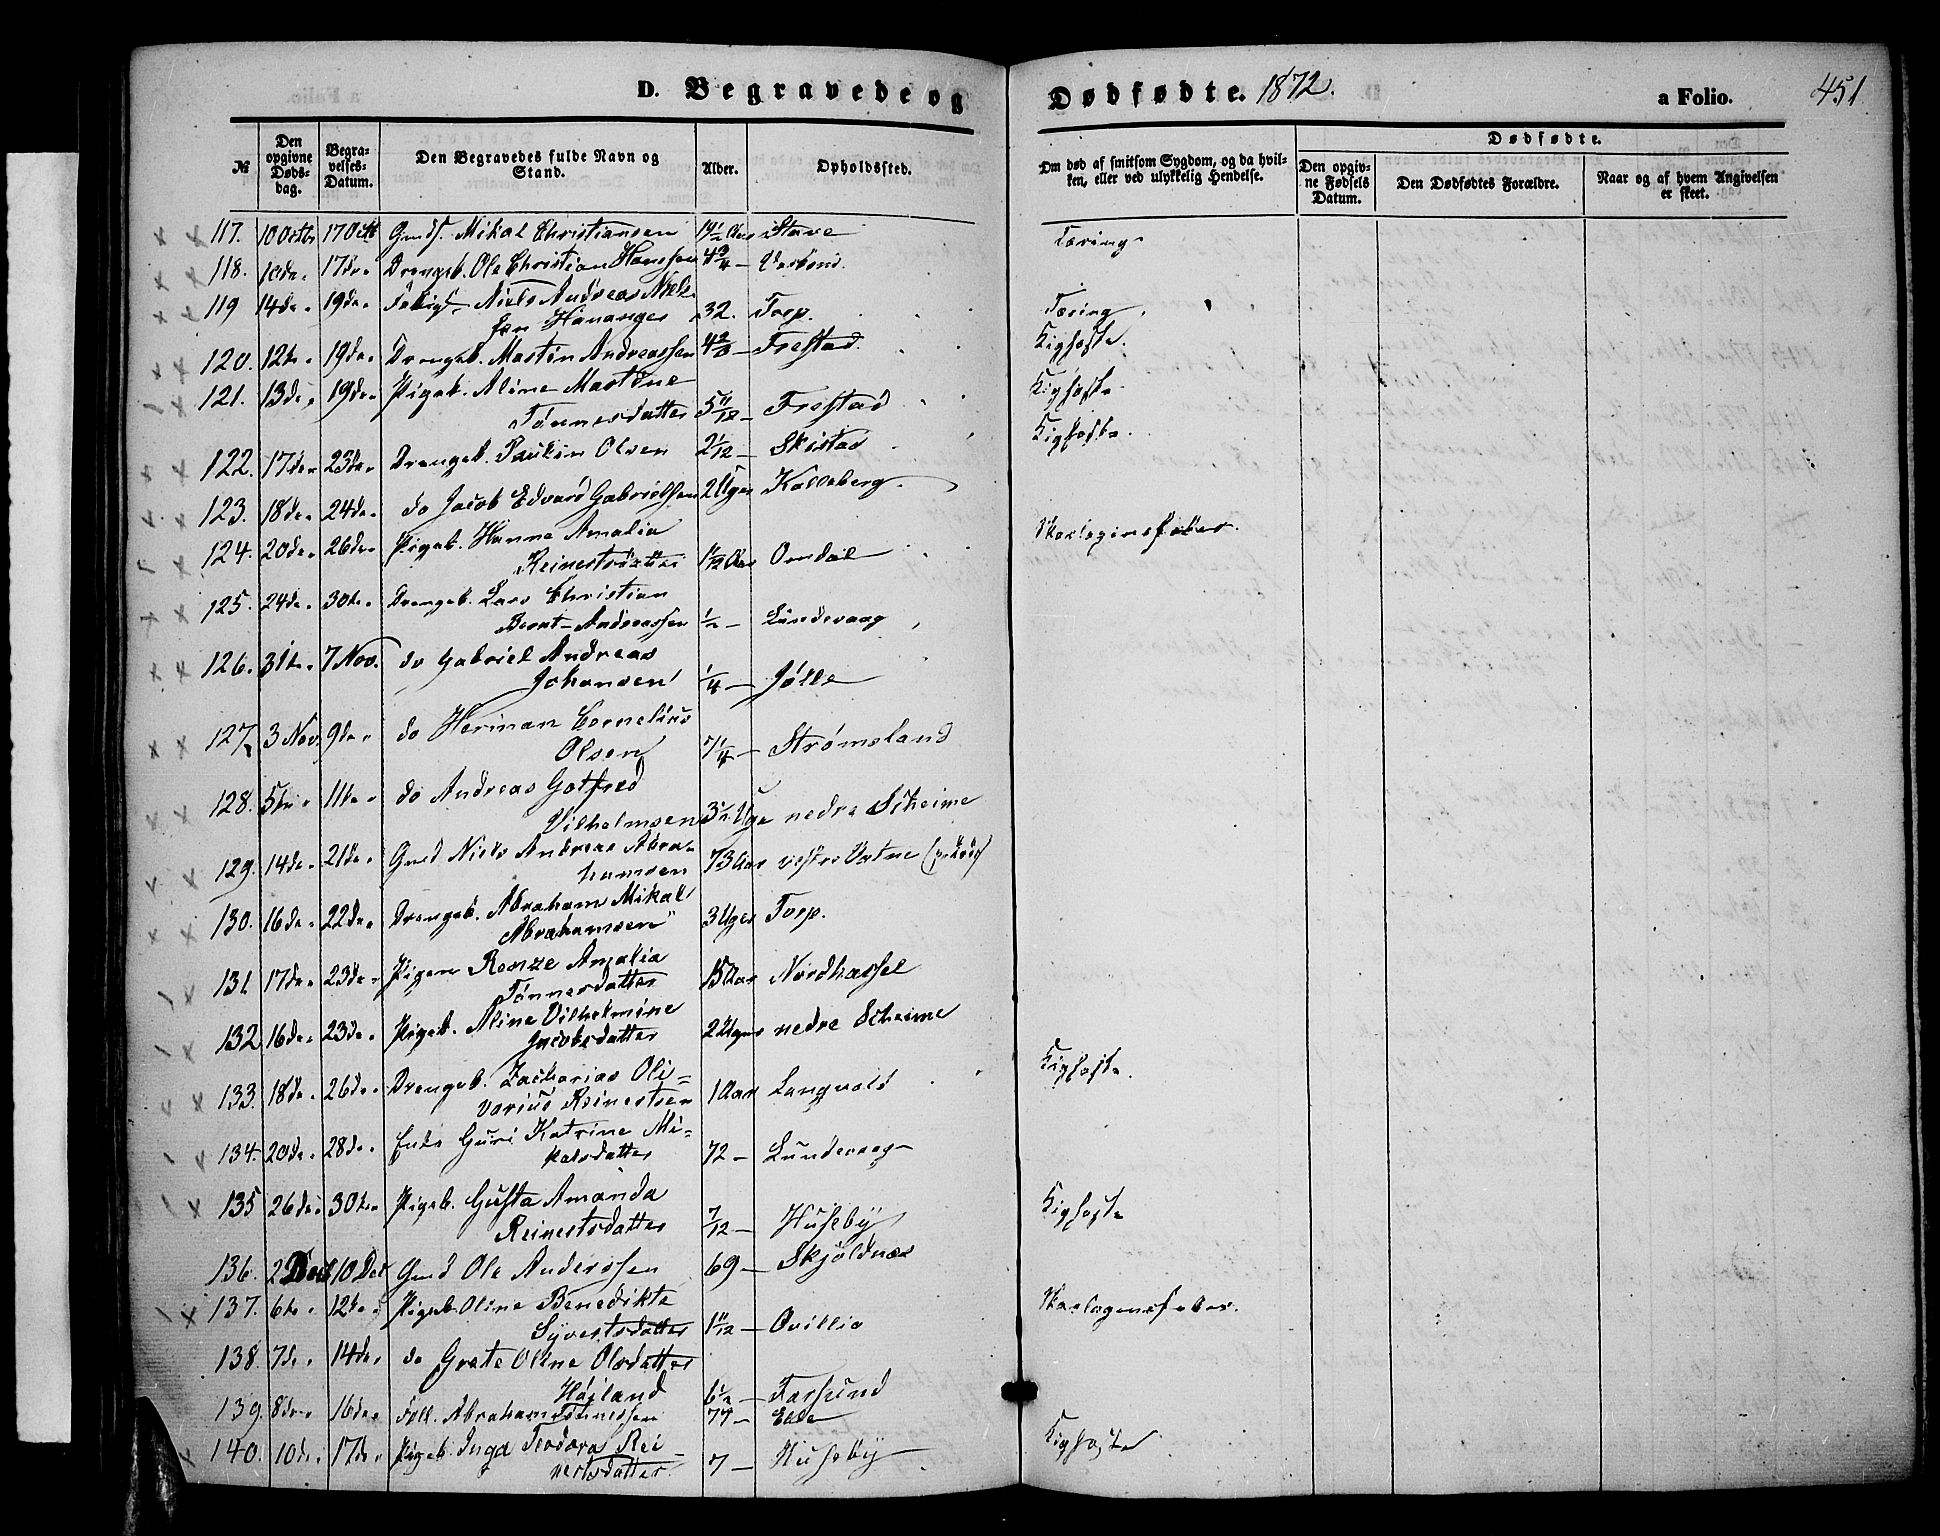 D. Begravede og Dødfødte. 1872. a Folio. 451
№ Den opgivne Dødsdag. Begravelses-Datum. Den Begravedes fulde Navn og Stand. Alder. Opholdssted. Om død af smitsom Sygdom, og da hvilken, eller ved ulykkelig Hendelse. Dødfødte.
Den opgivne Fødsels Datum. Den Dødfødtes Forældre. Naar og af hvem Angivelsen er skeet.
117. 10 Octbr 17 Oct Gmds. Mikal Christiansen Aar Stave Tæring
118. 10de 17de Drengeb. Ole Christian Hanssen 4 3/4 –
119 14de 19de Niels Andreas Niel-
sen Hananger 32. Torp. Tæring
120. 12te 19de Drengeb. Martin Andreassen – Frestad. Kighoste.
121. 13de 19de Pigeb. Aline Martine
Tönnesdatter 5 11/12 – Frestad Kighoste
122. 17de 23de Drengeb. Olsen 2 1/12 – Skistad Kighoste.
123. 18de 24de do Jacob Edvard Gabrielssen 2 Uger Kolleberg
124. 20de 26de Pigeb. Hanne Amalia
Reinertsdatter 1 1/12 Aar Omdal Skarlagensfeber.
125. 24de 30te Drengeb. Lars Christian
Bernt Andreassen 1/2 – Lundevaag
126. 31te 7 Nov. do Gabriel Andreas
Johansen 1/4 – Jölle
127. 3 Nov. 9de do Herman Cornelius
Olsen 7 1/4 – Strømsland
128. 5te 11te do Andreas Gotfred
Vilhelmsen 3 1/2 Uge nedre Scheime
129. 14de 21de Gmd Niels Andreas Abra-
hamsen 73 Aar vestre Vatne
130. 16de 22de Drengeb. Abraham Mikal
Abrahamsen 3 Uger Torp.
131. 17de 23de Pigen Amalia
Tönnesdatter 15 Aar Nordhassel
132. 16de 23de Pigeb. Aline Vilhelmine
Jacobsdatter 2 Uger nedre Scheime
133. 18de 26de Drengeb. Zacharias Oli-
varius Reinertsen 1 Aar Langvold Kighoste.
134. 20de 28de Enke Guri Katrine Mi-
kalsdatter 72 – Lundevaag
135 26de 30te Pigeb. Gusta Amanda
Reinertsdatter 7/12 – Huseby Kighoste
136. 2 Dec 10 Dec Gmd Ole Anderssen 69 – Skjöldnæs
137. 6te 12te Pigeb. Oline Benedikte
Syvertsdatter 1 11/12 – Ovillia Skarlagensfeber.
138. 7de 14de do Grete Oline Olsdatter
Höiland 6 1/2 – Farsund
139. 8de 16de Abraham Tönnessen 77 –
140. 10de 17de Pigeb. Inga Teodora Rei-
nertsdatter 7 – Huseby Kighoste